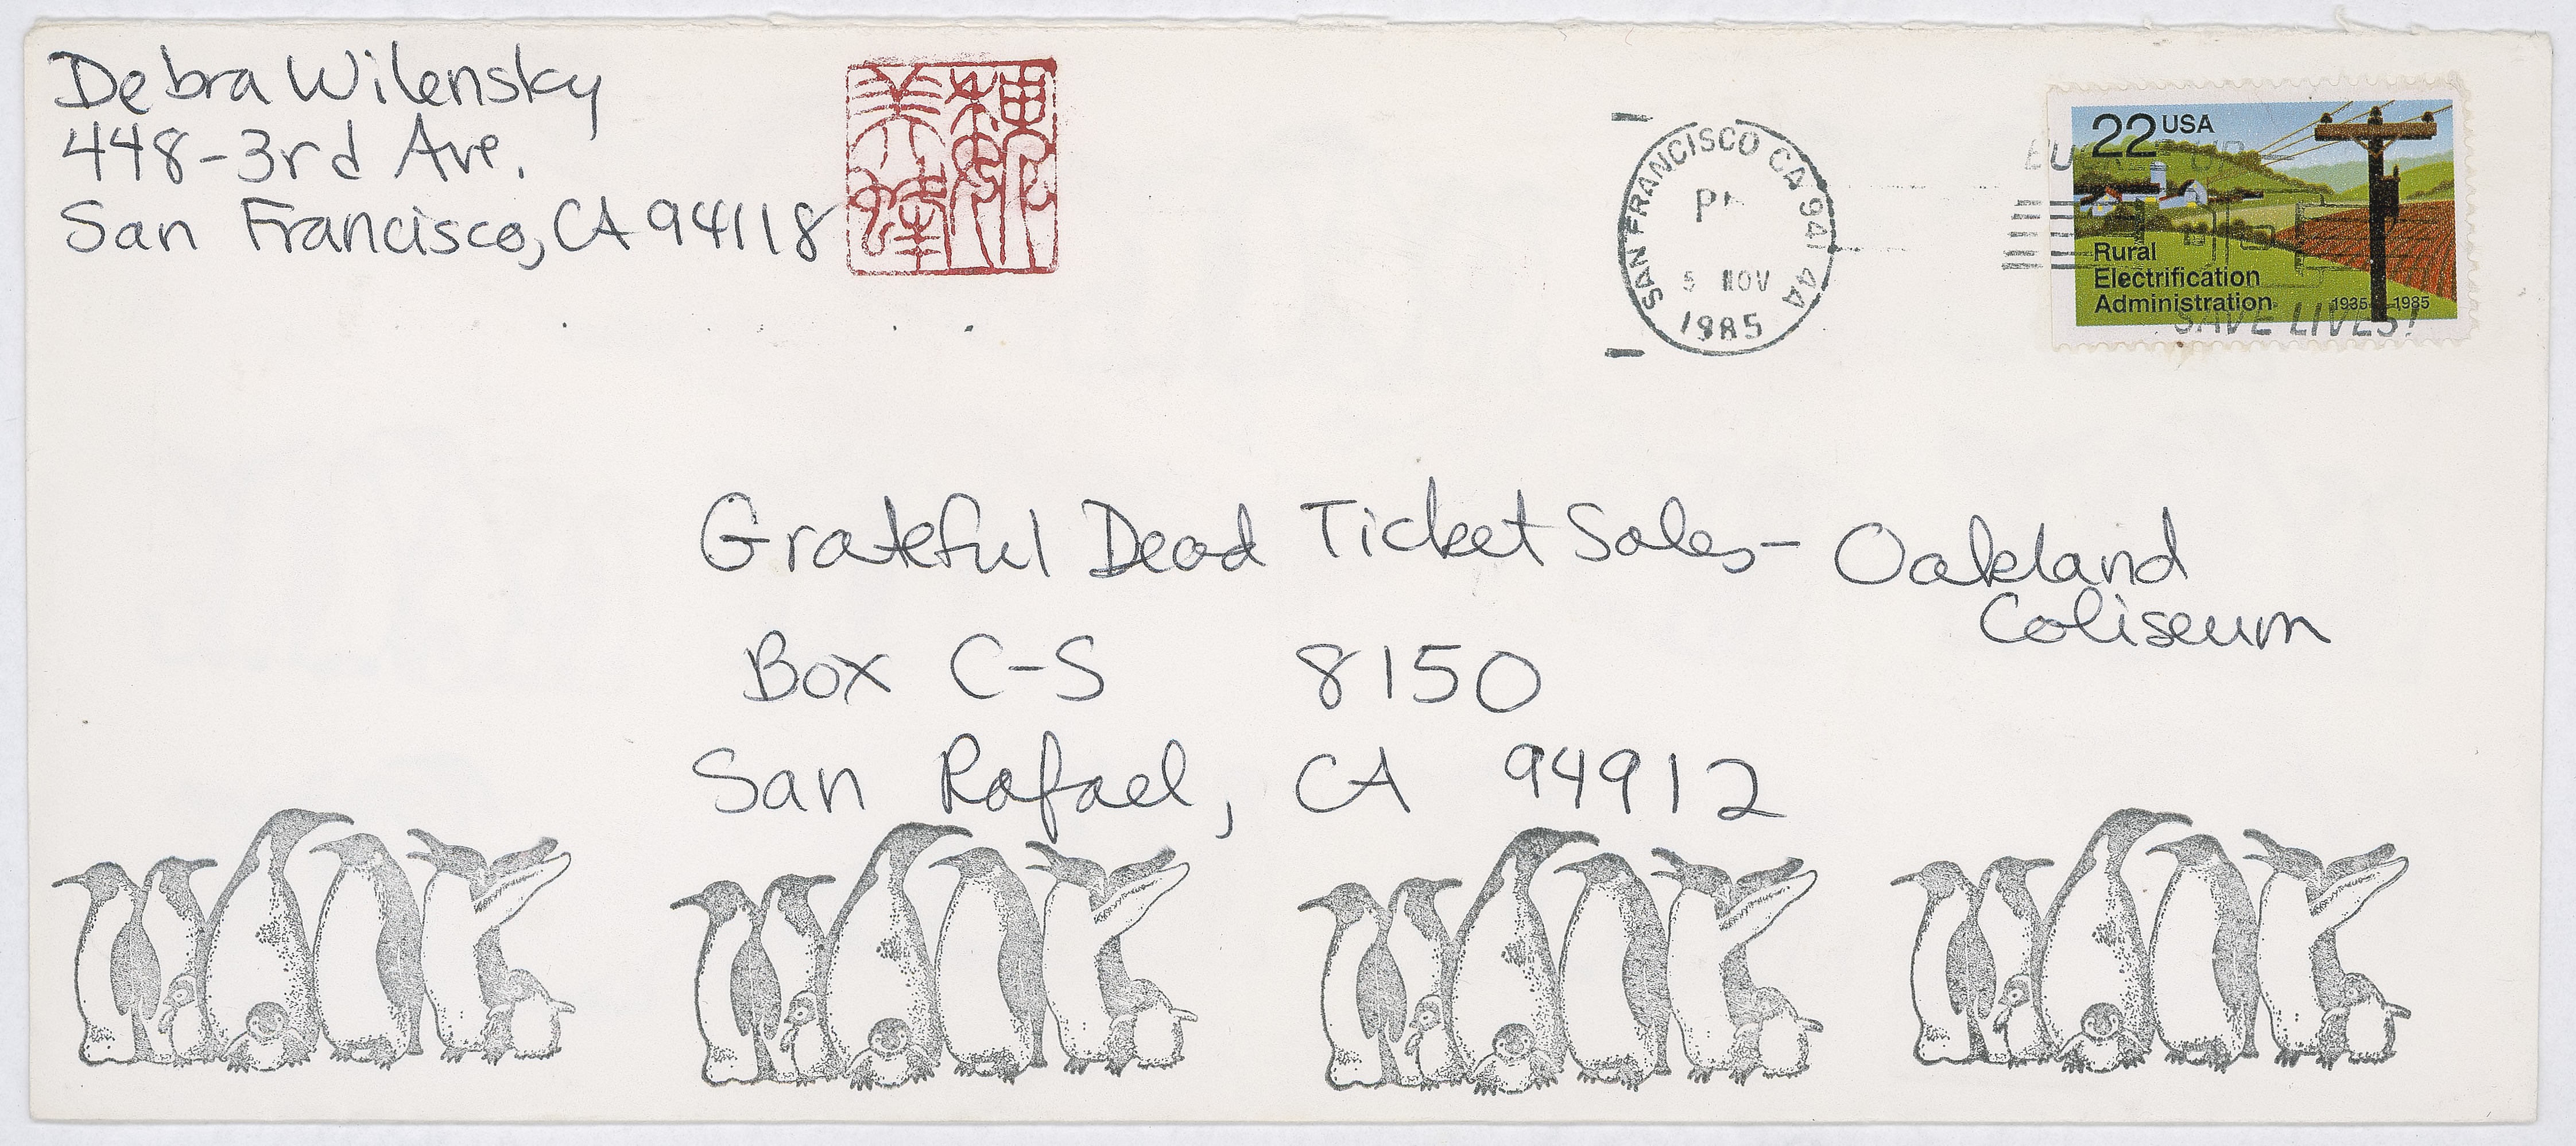 Debra Wilensky
448-3rd Ave.
San Francisco, CA 94118
SAN FRANCISCO CA 941 4A
5 NOV
1985
22 USA
Rural
Electrification
Administration
1935-1985
SAVE LIVES!
Grateful Dead Ticket Sales- Oakland
Coliseum
Box C-S 8150
San Rafael, CA 94912